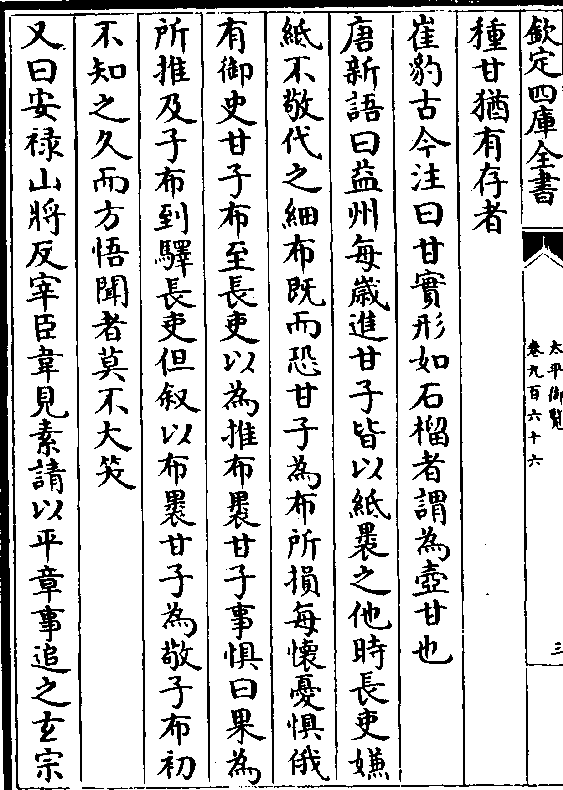 欽定四庫全書
太平御覽
卷九百六十六
三
種甘猶有存者
崔豹古今注曰甘實形如石榴者謂為壺甘也
唐新語曰益州每歲進甘子皆以紙褁之他時長吏嫌
紙不敬代之細布既而恐甘子為布所損每懷憂懼俄
有御史甘子布至長吏以為推布褁甘子事懼曰果為
所推及子布到驛長吏但叙以布褁甘子為敬子布初
不知之久而方悟聞者莫不大笑
又曰安禄山將反宰臣韋見素請以平章事追之玄宗